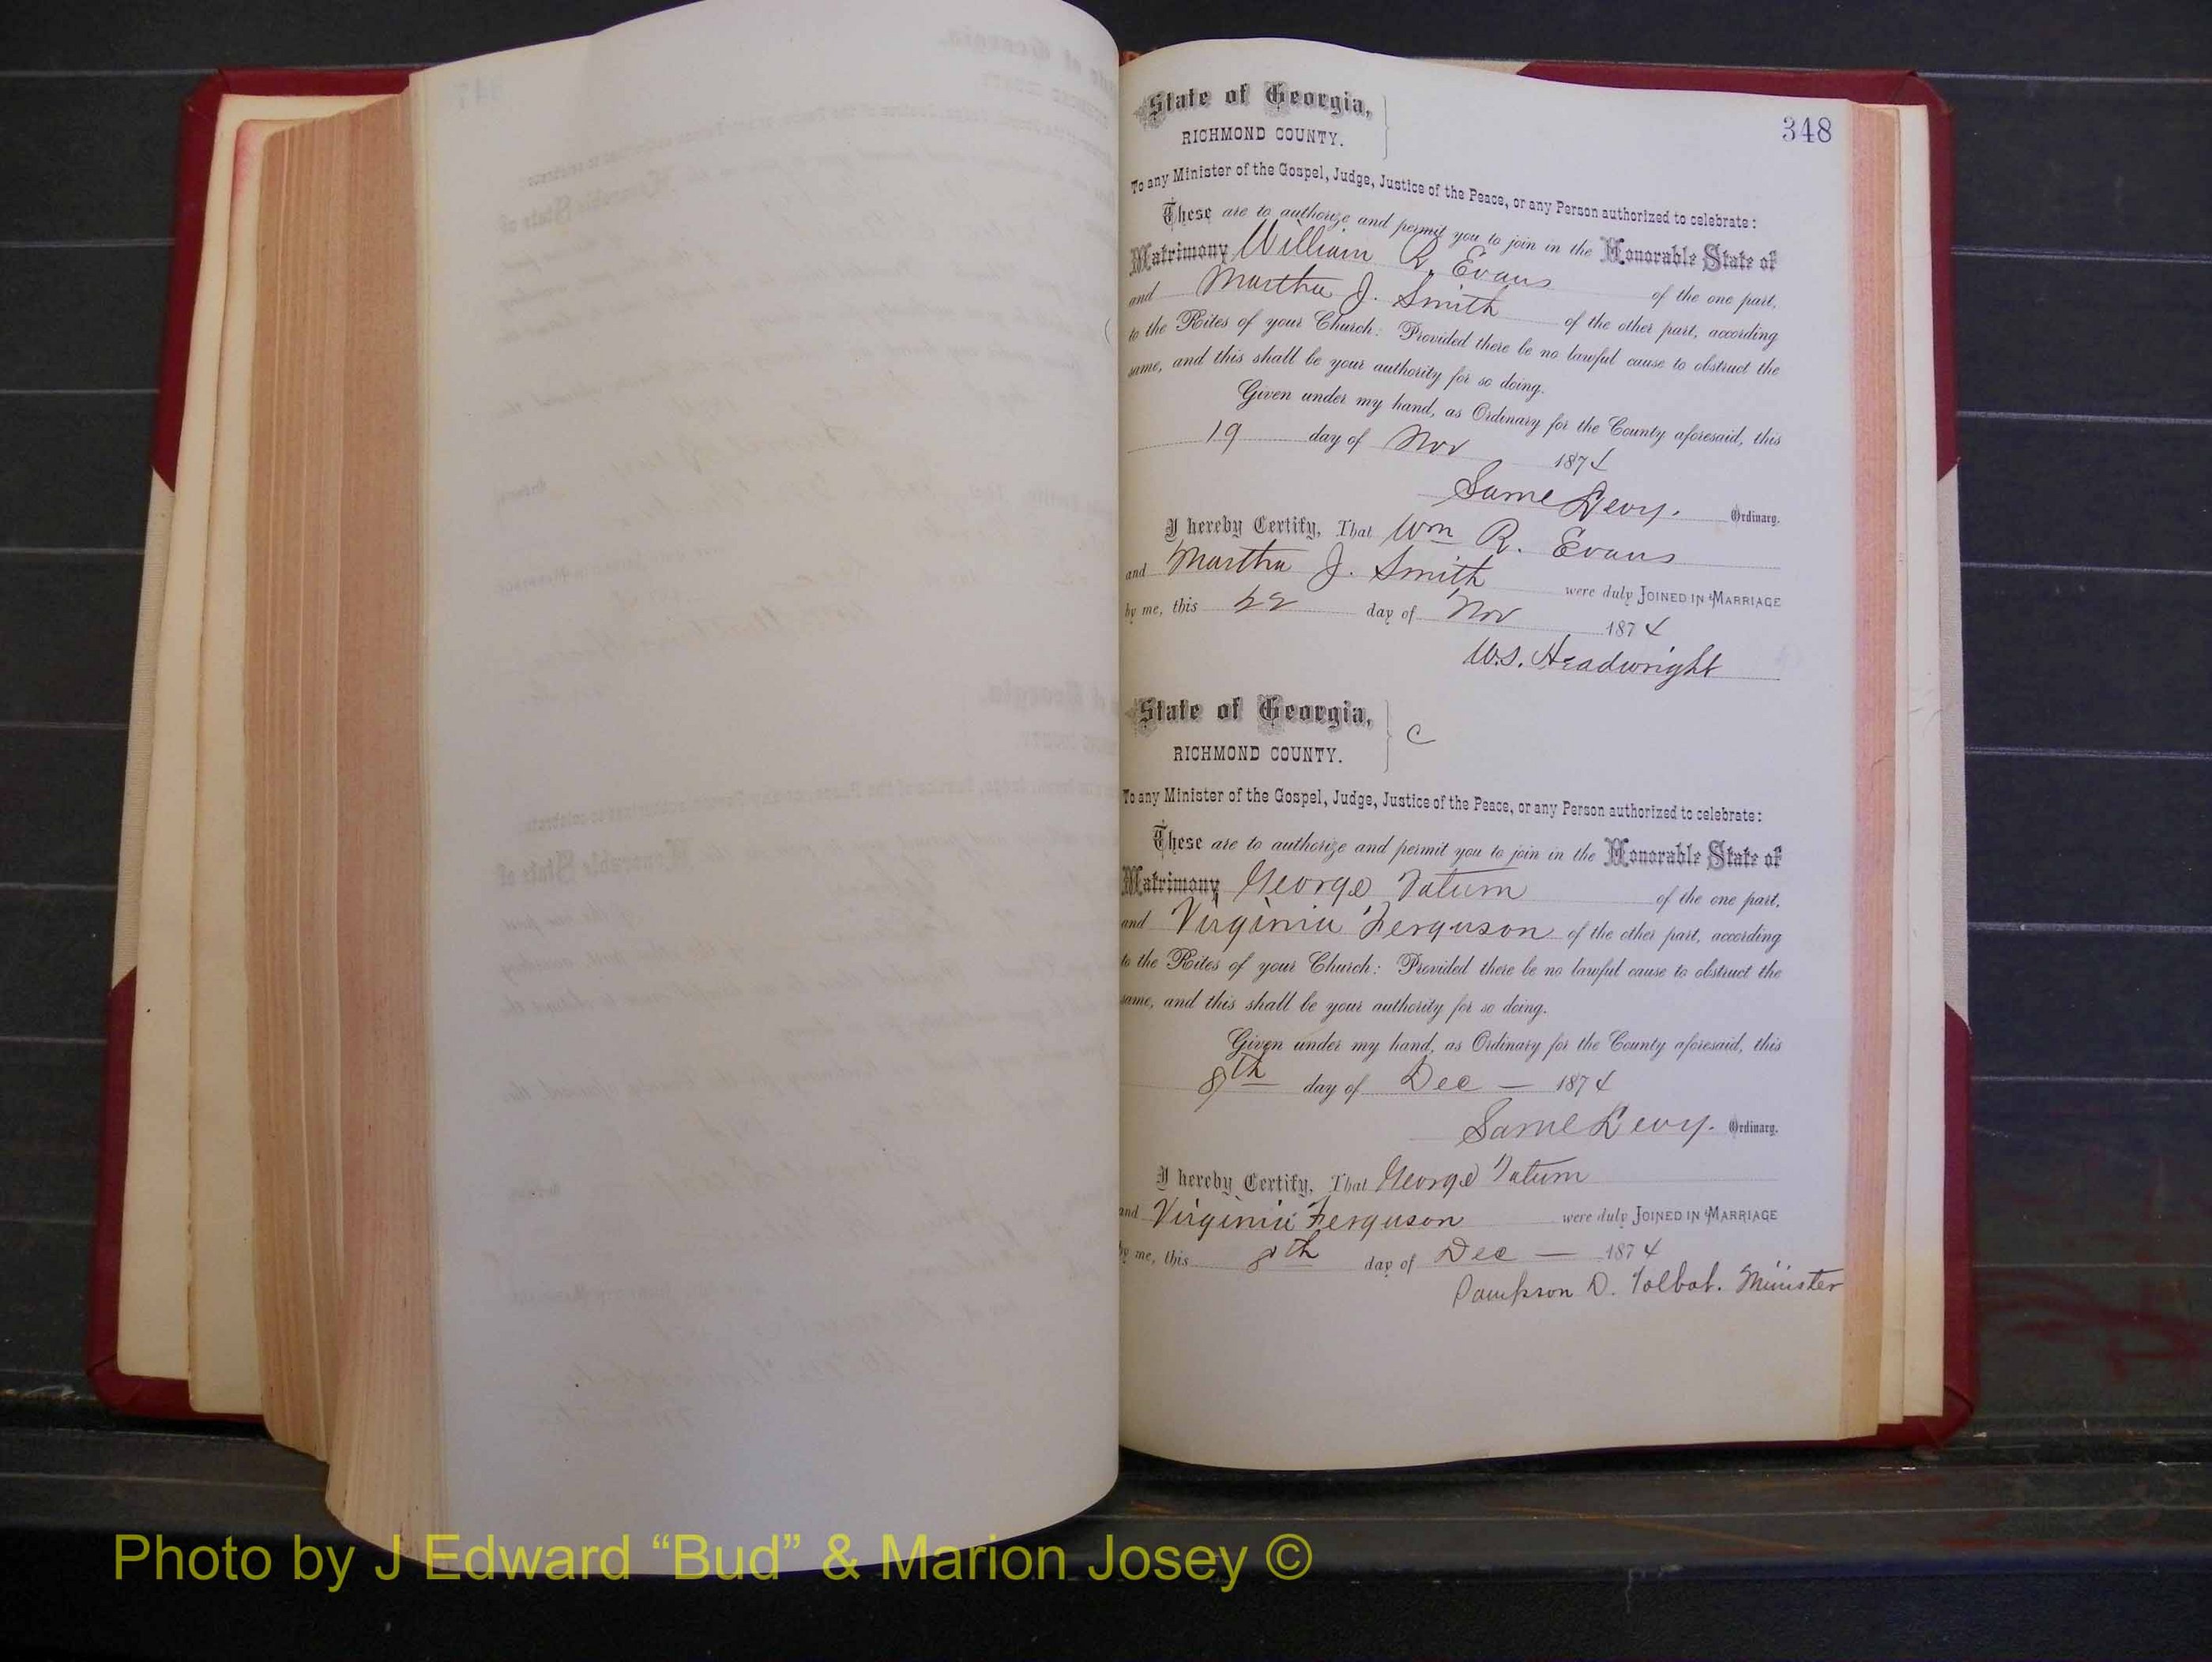 348
State of Georgia,
RICHMOND COUNTY.
To any Minister of the Gospel, Judge, Justice of the Peace, or any Person authorized to celebrate:
These are to authorize and permit you to join in the Honorable State of
Matrimony William R. Evans of the one part,
and Martha J. Smith of the other part, according
to the Rites of your Church: Provided there be no lawful cause to obstruct the
same, and this shall be your authority for so doing.
Given under my hand, as Ordinary for the County aforesaid, this
19 day of Nov 1874
Saml Levy. Ordinary.
I hereby Certify, That Wm R. Evans
and Martha J. Smith were duly JOINED IN MARRIAGE
by me, this 22 day of Nov 1874
W.S. Headwright
State of Georgia, C
RICHMOND COUNTY.
To any Minister of the Gospel, Judge, Justice of the Peace, or any Person authorized to celebrate:
These are to authorize and permit you to join in the Honorable State of
Matrimony George Tatum of the one part,
and Virginia Ferguson of the other part, according
to the Rites of your Church: Provided there be no lawful cause to obstruct the
same, and this shall be your authority for so doing.
Given under my hand, as Ordinary for the County aforesaid, this
8th day of Dec — 1874
Saml Levy. Ordinary.
I hereby Certify, That George Tatum
and Virginia Ferguson were duly JOINED IN MARRIAGE
by me, this 8th day of Dec — 1874
Sampson D. Tolbot. Minister
Photo by J Edward “Bud” & Marion Josey ©